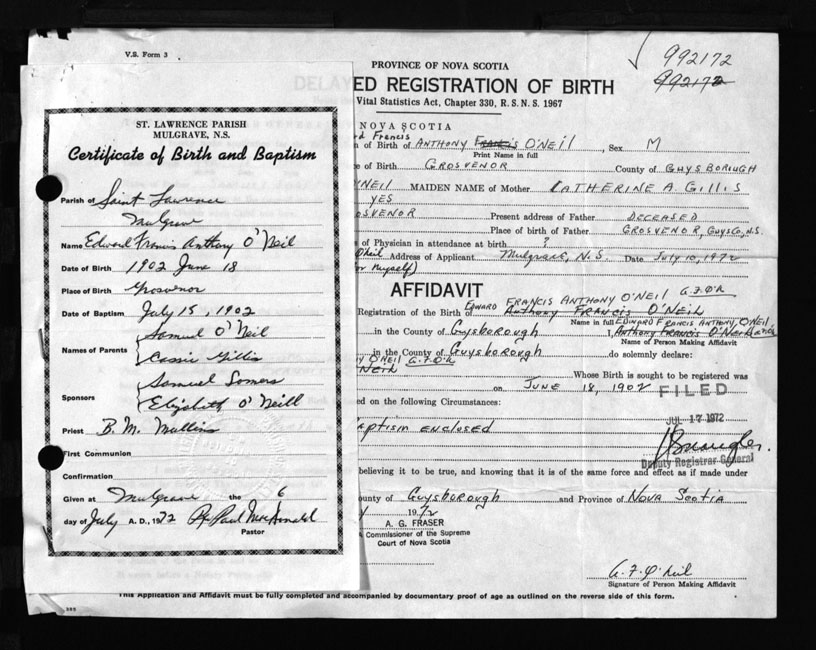 V.S. Form 3
992172
992172
PROVINCE OF NOVA SCOTIA
DELAYED REGISTRATION OF BIRTH
Vital Statistics Act, Chapter 330, R.S.N.S. 1967
NOVA SCOTIA
rd Francis
n of Birth of ANTHONY FRANCIS O'NEIL, Sex M
Print Name in full
e of Birth GROSVENOR County of GUYSBOROUGH
'NEIL MAIDEN NAME of Mother CATHERINE A. GILLIS
YES
OSVENOR Present address of Father DECEASED
Place of birth of Father GROSVENOR, GUYSCO, N.S.
s of Physician in attendance at birth ?
O'Neil Address of Applicant Mulgrave, N.S. Date July 10, 1972
for myself)
AFFIDAVIT
EDWARD FRANCIS ANTHONY O'NEIL G.F.O'N
Registration of the Birth of Anthony FRANCIS O'NEIL
Name in full EDWARD FRANCIS ANTHONY O'NEIL
in the County of Guysborough I, ANTHONY FRANCIS O'Neil
Name of Person Making Affidavit
in the County of Guysborough do solemnly declare:
Y O'NEIL G.F.O'N
NEIL Whose Birth is sought to be registered was
on JUNE 18, 1902
FILED
ed on the following Circumstances:
JUL 17 1972
aptism enclosed
Deputy Registrar General
believing it to be true, and knowing that it is of the same force and effect as if made under
ounty of Guysborough and Province of NOVA SCOTIA
y 1972
A. G. FRASER
A Commissioner of the Supreme
Court of Nova Scotia
A.F. O'Neil
Signature of Person Making Affidavit
This Application and Affidavit must be fully completed and accompanied by documentary proof of age as outlined on the reverse side of this form.
ST. LAWRENCE PARISH
MULGRAVE, N.S.
Certificate of Birth and Baptism
Parish of Saint Lawrence
Mulgrave
Name Edward Francis Anthony O'Neil
Date of Birth 1902 June 18
Place of Birth Grosvenor
Date of Baptism July 15, 1902
Samuel O'Neil
Names of Parents
Cassie Gillis
Samuel Somers
Sponsors
Elizabeth O'Neill
Priest B. M. Mullins
First Communion
Confirmation
Given at Mulgrave the 6
day of July A.D., 1972 R. Paul MacDonald
Pastor